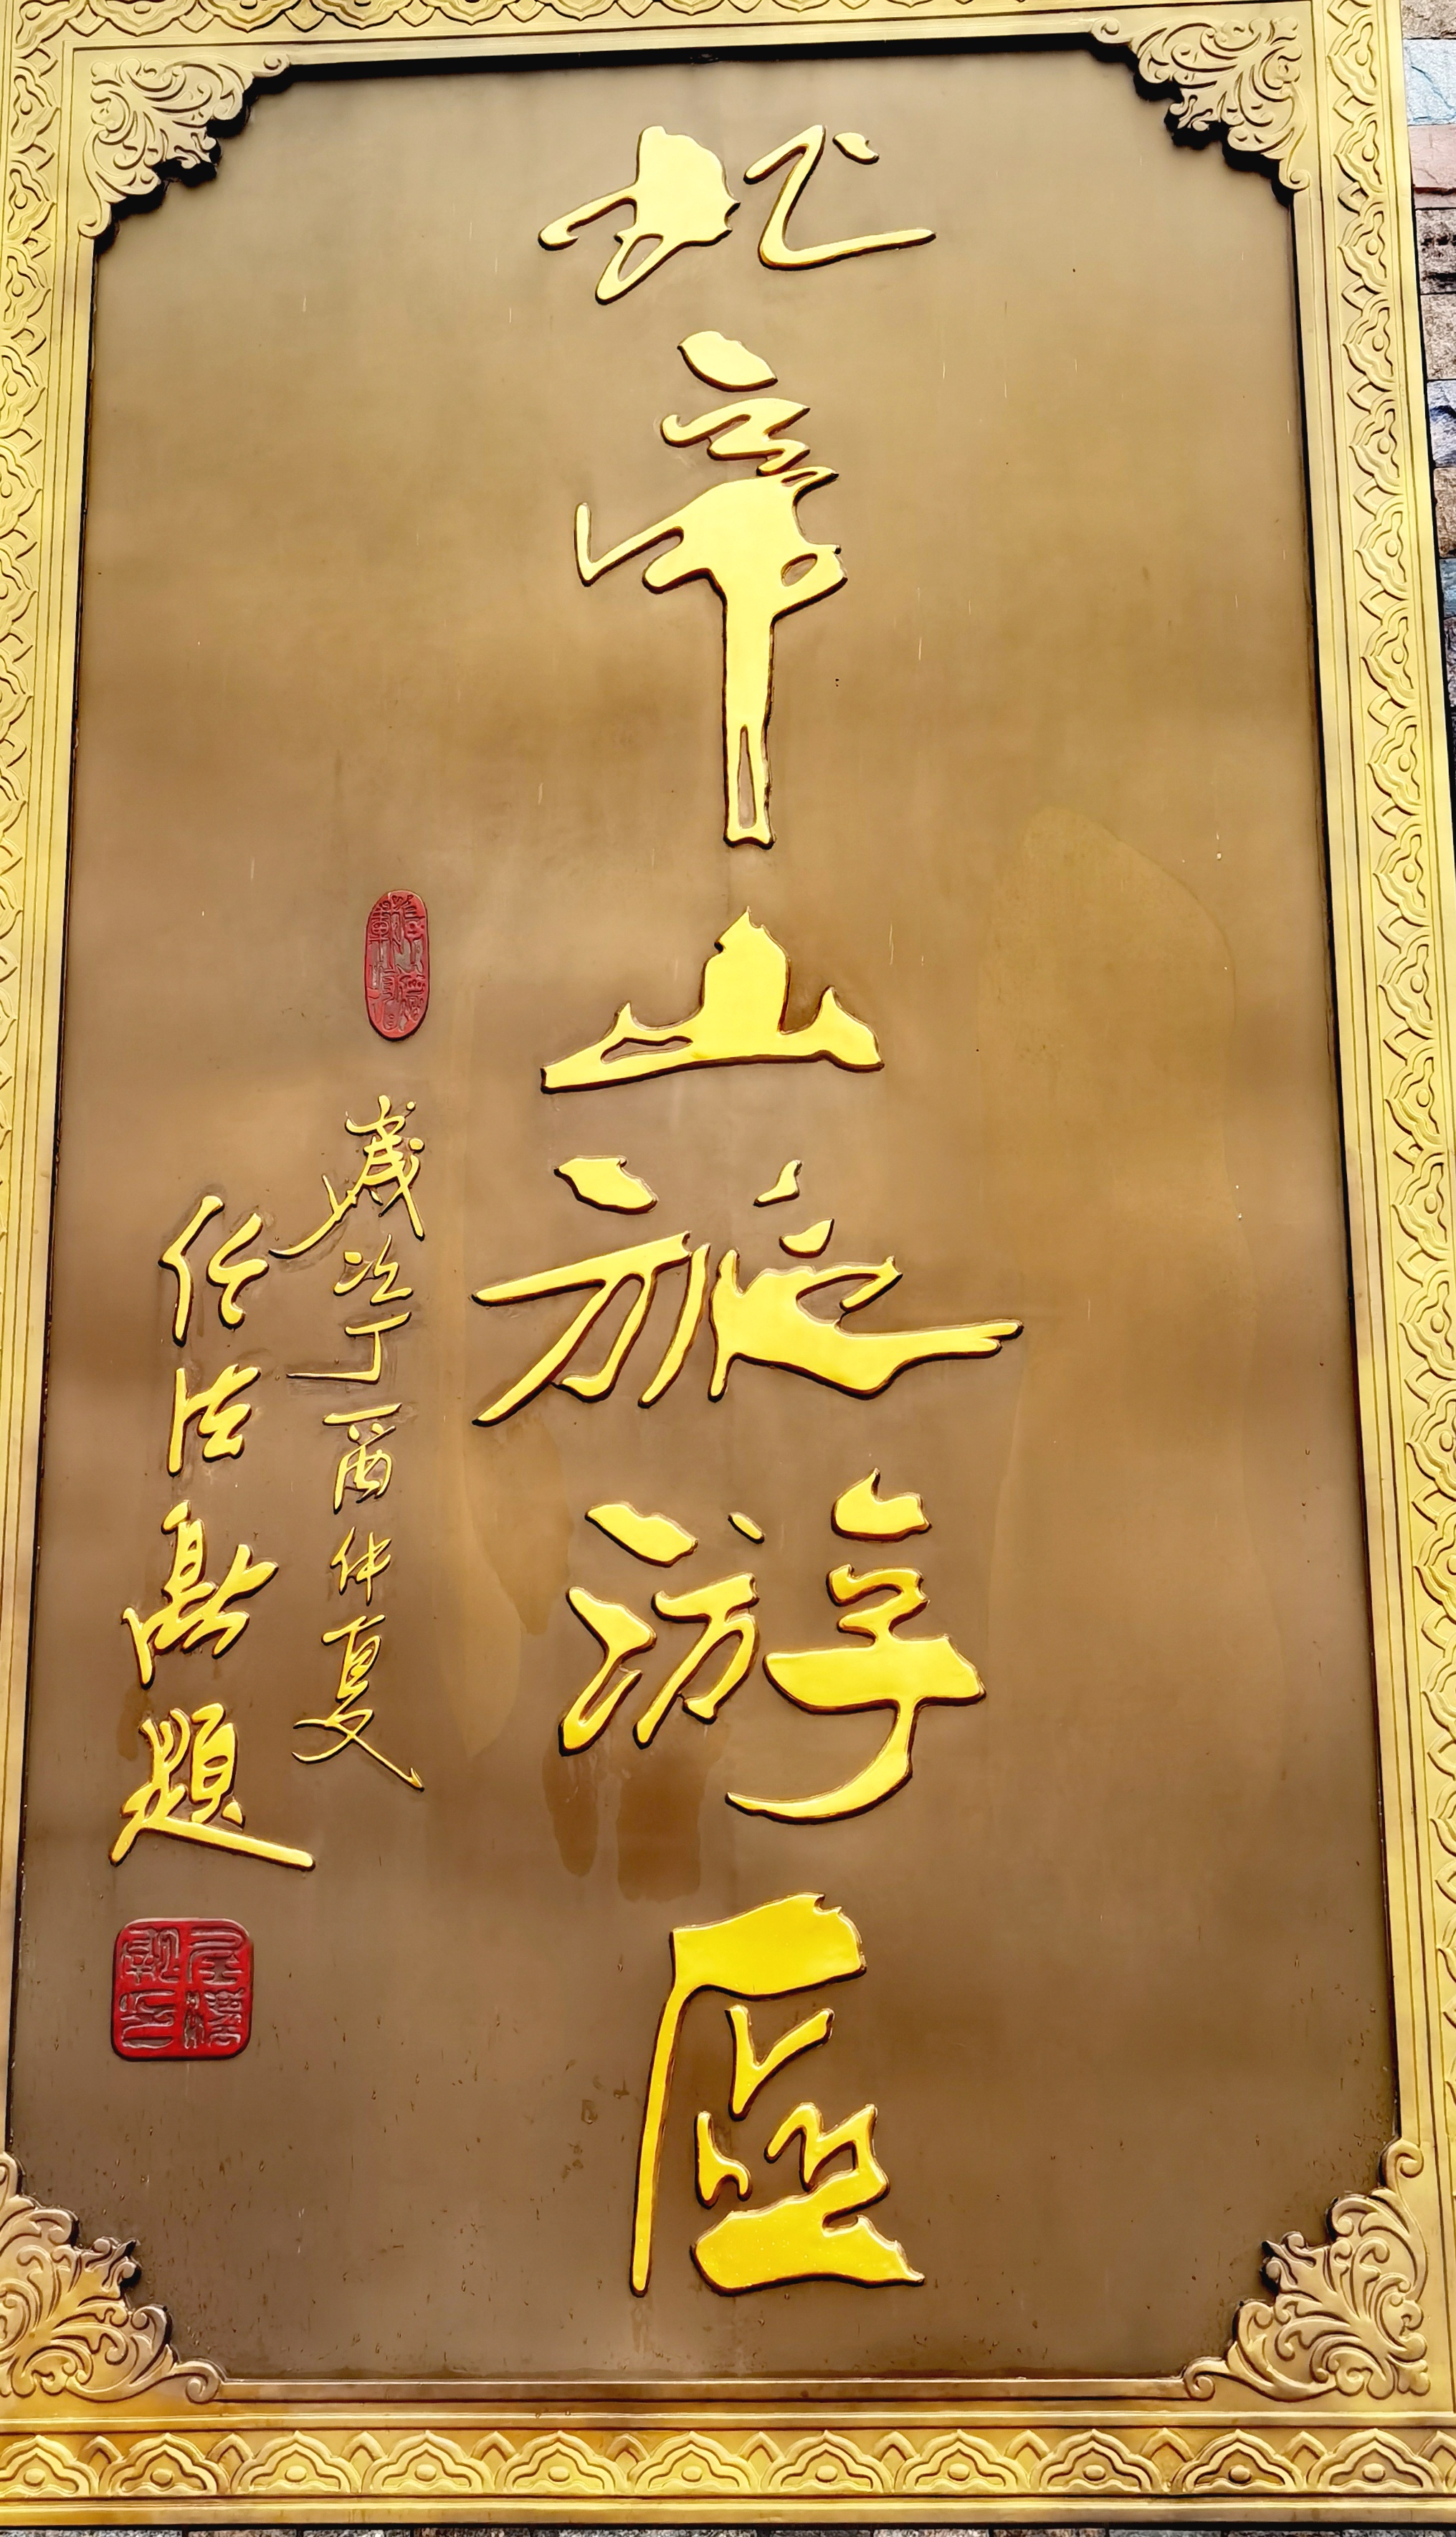 北帝山旅游區
歲次丁酉仲夏
任法融題